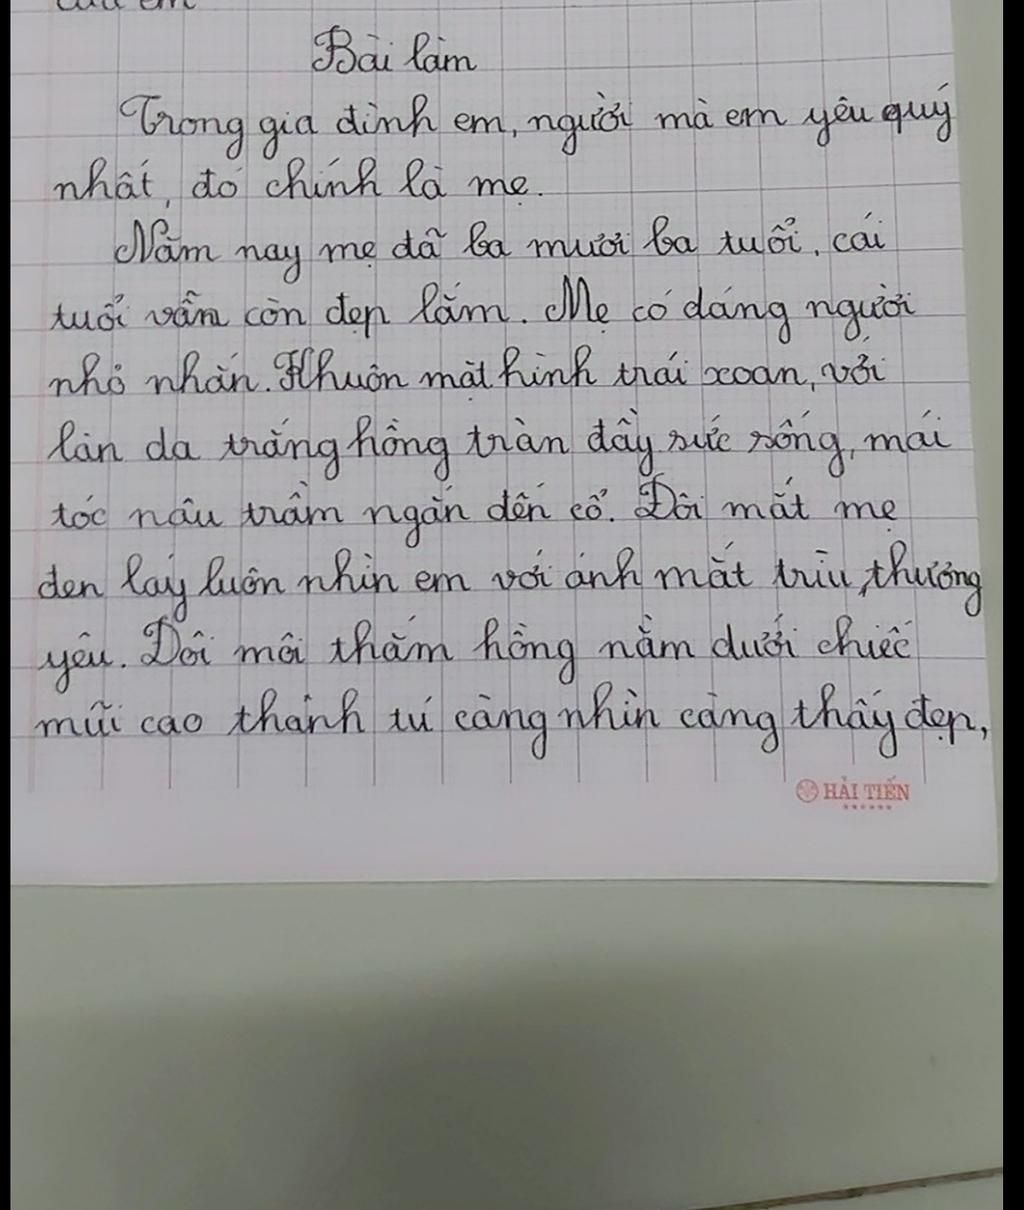 Bài làm
Trong gia đình em, người mà em yêu quý
nhất, đó chính là mẹ.
Năm nay mẹ đã ba mươi ba tuổi, cái
tuổi vẫn còn đẹp lắm. Mẹ có dáng người
nhỏ nhắn. Khuôn mặt hình trái xoan, với
làn da trắng hồng tràn đầy sức sống, mái
tóc nâu trầm ngắn đến cổ. Đôi mắt mẹ
đen láy luôn nhìn em với ánh mắt trìu, thương
yêu. Đôi môi thắm hồng nằm dưới chiếc
mũi cao thanh tú càng nhìn càng thấy đẹp,
HẢI TIẾN